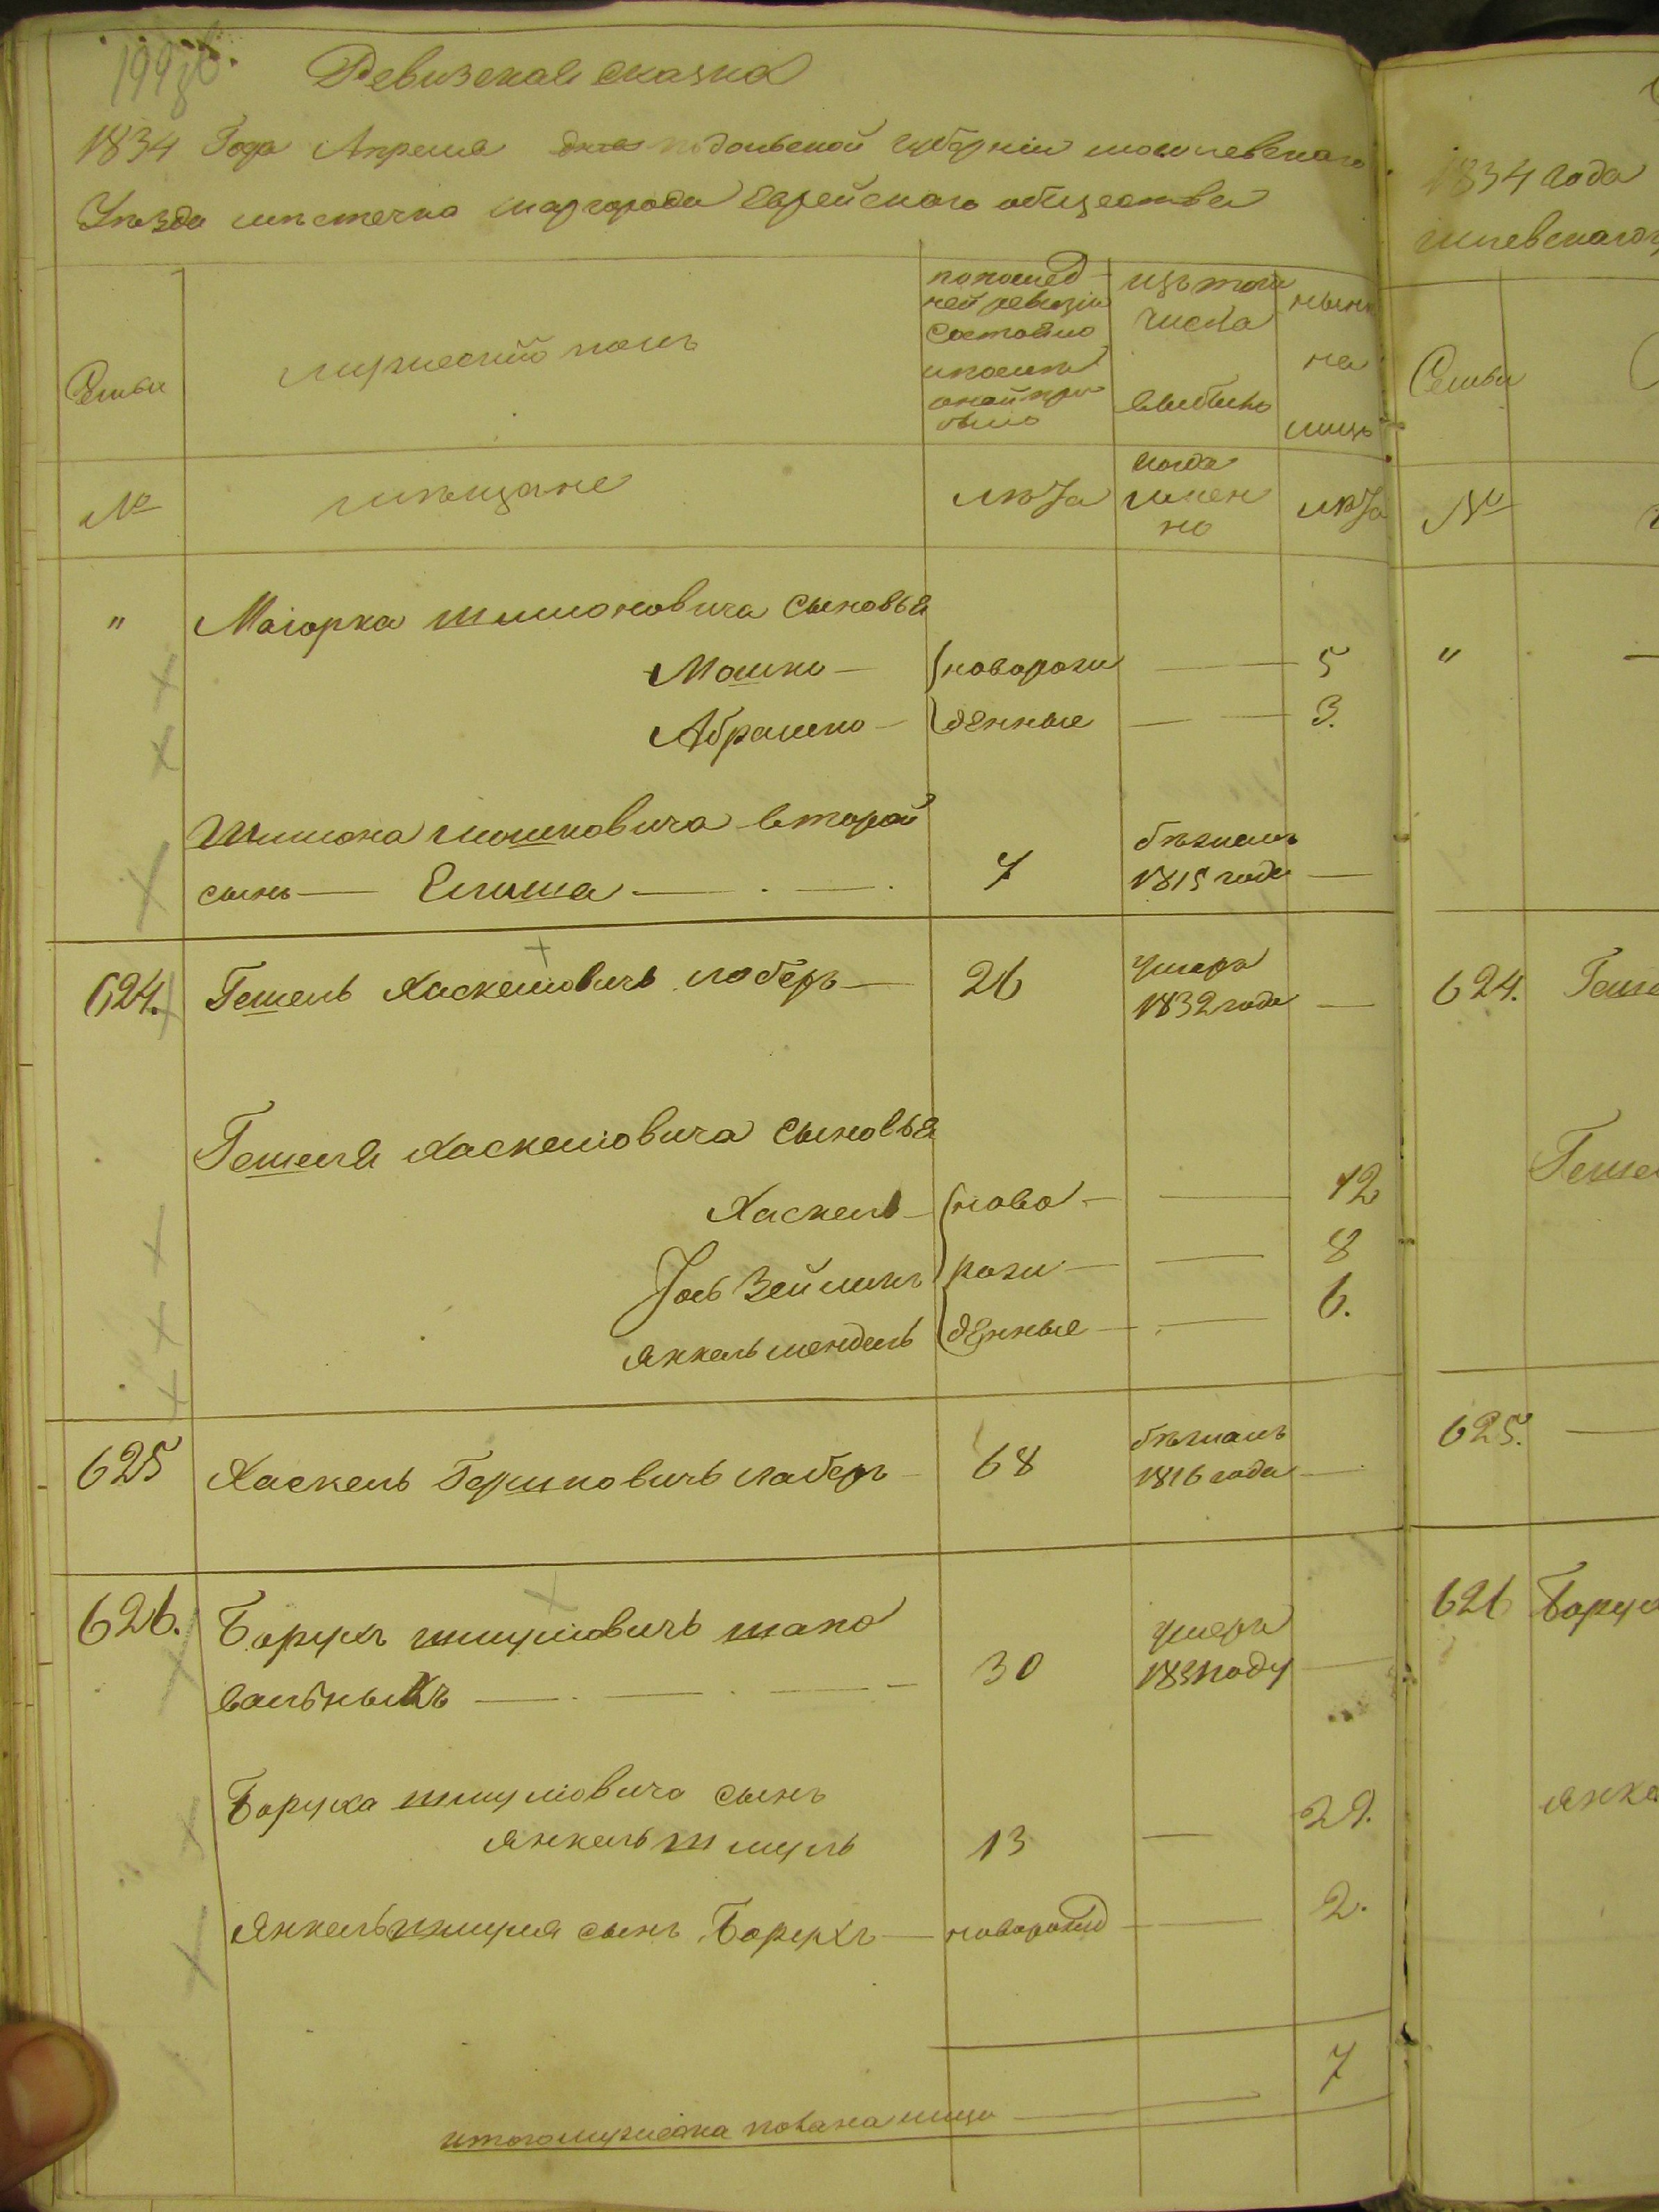 Ревизская сказка
1834 Года Апреля дня подольской губерніи могилевскаго
Уѣзда мѣстечка шаргорода Еврейскаго общества
Семьи
мужеский полъ
по послед
ней ревизіи
состояло
и после
оной при
было
изъ того
числа
выбыло
ныне
на
лицо
№
мѣщане
лѣта
когда
имен
но
лѣта
" Маіорка Шмионовича сыновья
Мошко — новорож — 5
Абрашко — денные — — 3.
Шмиона мошковича второй
сынъ — Елиша — . — . 7 бѣжалъ
1815 года —
624. Гешель Хаскелiовичь лоберъ — 26 умеръ
1832 года —
Гешеля Хаскелiовича сыновья
Хаскель — ново — — 12
Іось Зейликъ рож — — 8
Янкель мендель денные — — 6.
625 Хаскель Гершковичь лаберъ — 68 бѣжалъ
1816 года —
626. Борухъ шмулiовичь шапо
вальныхъ — . — . — 30 умеръ
1831 году —
Боруха шмулiовича сынъ
Янкель шмуль 13 — 29.
Янкель шмуля сынъ Борухъ — новорожд — 2.
7
итого мужеска пола на лицо —
1834 года
Семьи
№
"
624.
625. —
626